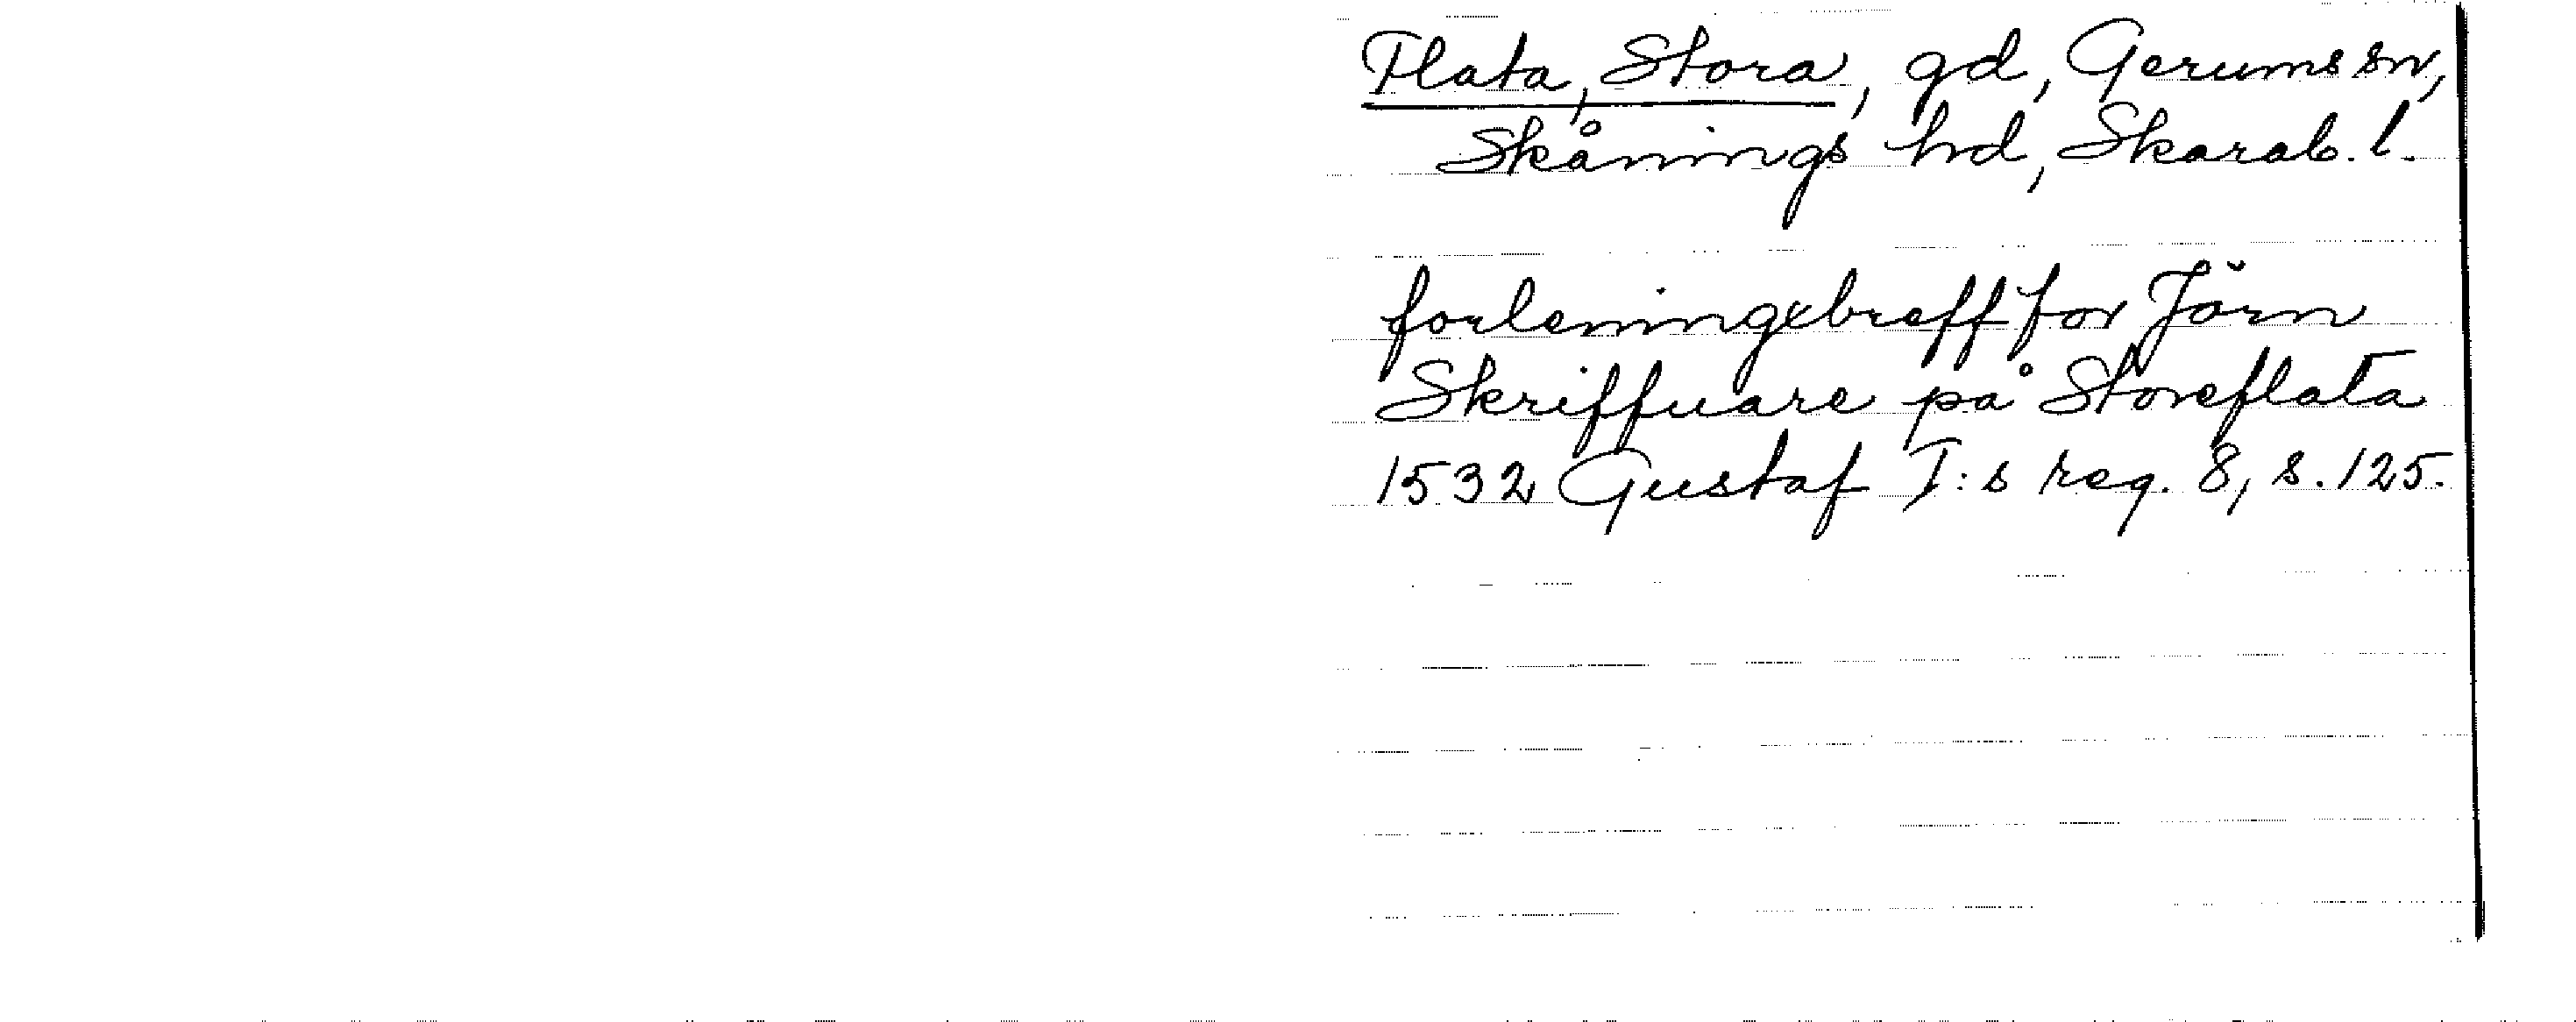 Flata, Stora, gd, Gerums sn,
Skånings hd, Skarab. l.
forleningxbreff for Jörn
Skriffuare på Storeflata
1532 Gustaf I:s reg. 8, s. 125.